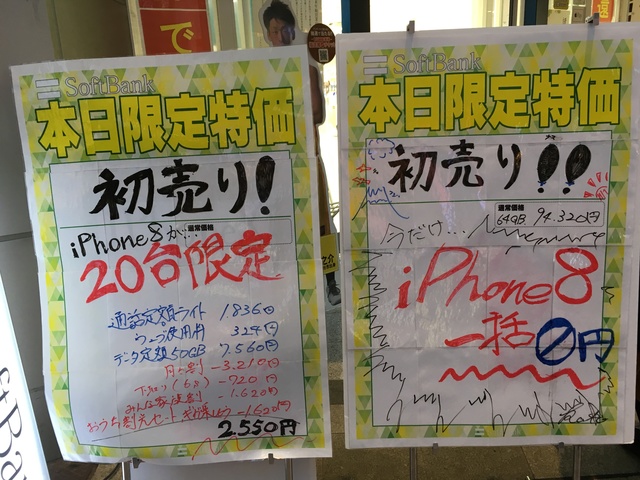 で
SoftBank
本日限定特価
初売り!
通常価格
iPhone8が…
20台限定
通話定額ライト 1836円
ウェブ使用料 324円
データ定額50GB 7.560円
月々割 -3.210円
下取り(6s) -720円
みんな家族割 -1.620円
おうち割セット -1620円
2.550円
SoftBank
本日限定特価
初売り!!
通常価格
今だけ… 64GB 94.320円
iPhone8
一括0円